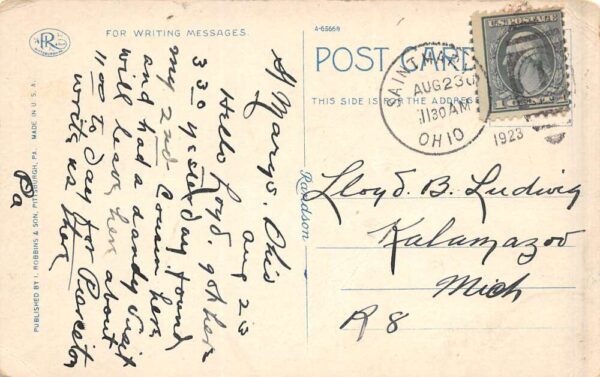 FOR WRITING MESSAGES.
A-65669
POST CARD
THIS SIDE IS FOR THE ADDRESS
U.S. POSTAGE
1 CENT 1
SAINT MARYS
AUG 23
1130 AM
OHIO
1923
St Marys. Ohio
Aug 23
Hello Loyd. got here
330 yesterday found
my 2nd Cousin here
and had a dandy visit
will leave here about
1100 to day for Pierceton
write us there
Pa
Lloyd. B. Ludwig
Kalamazoo
Mich
R 8
Randson
PUBLISHED BY I. ROBBINS & SON, PITTSBURGH, PA. MADE IN U.S.A.